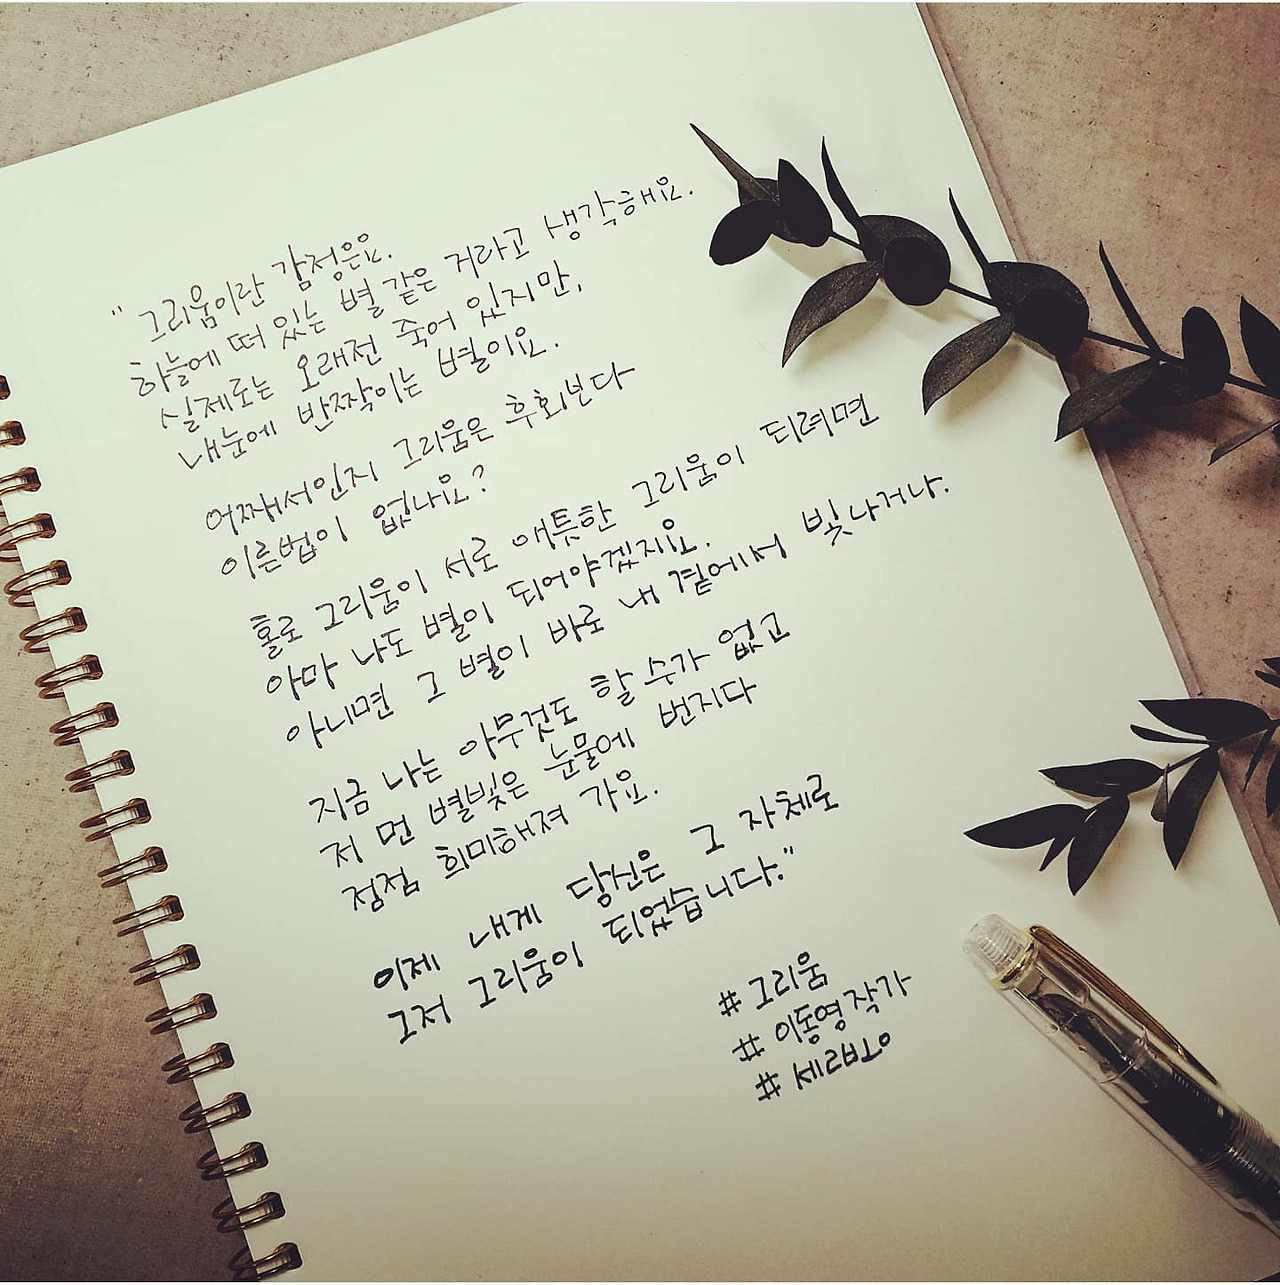 " 그리움이란 감정은요.
하늘에 떠 있는 별 같은 거라고 생각해요.
실제로는 오래전 죽어 있지만,
내눈에 반짝이는 별이요.
어째서인지 그리움은 후회보다
이른법이 없나요?
홀로 그리움이 서로 애틋한 그리움이 되려면
아마 나도 별이 되어야겠지요.
아니면 그 별이 바로 내 곁에서 빛나거나.
지금 나는 아무것도 할 수가 없고
저 먼 별빛은 눈물에 번지다
점점 희미해져 가요.
이제 내게 당신은 그 자체로
그저 그리움이 되었습니다."
# 그리움
# 이동영 작가
#